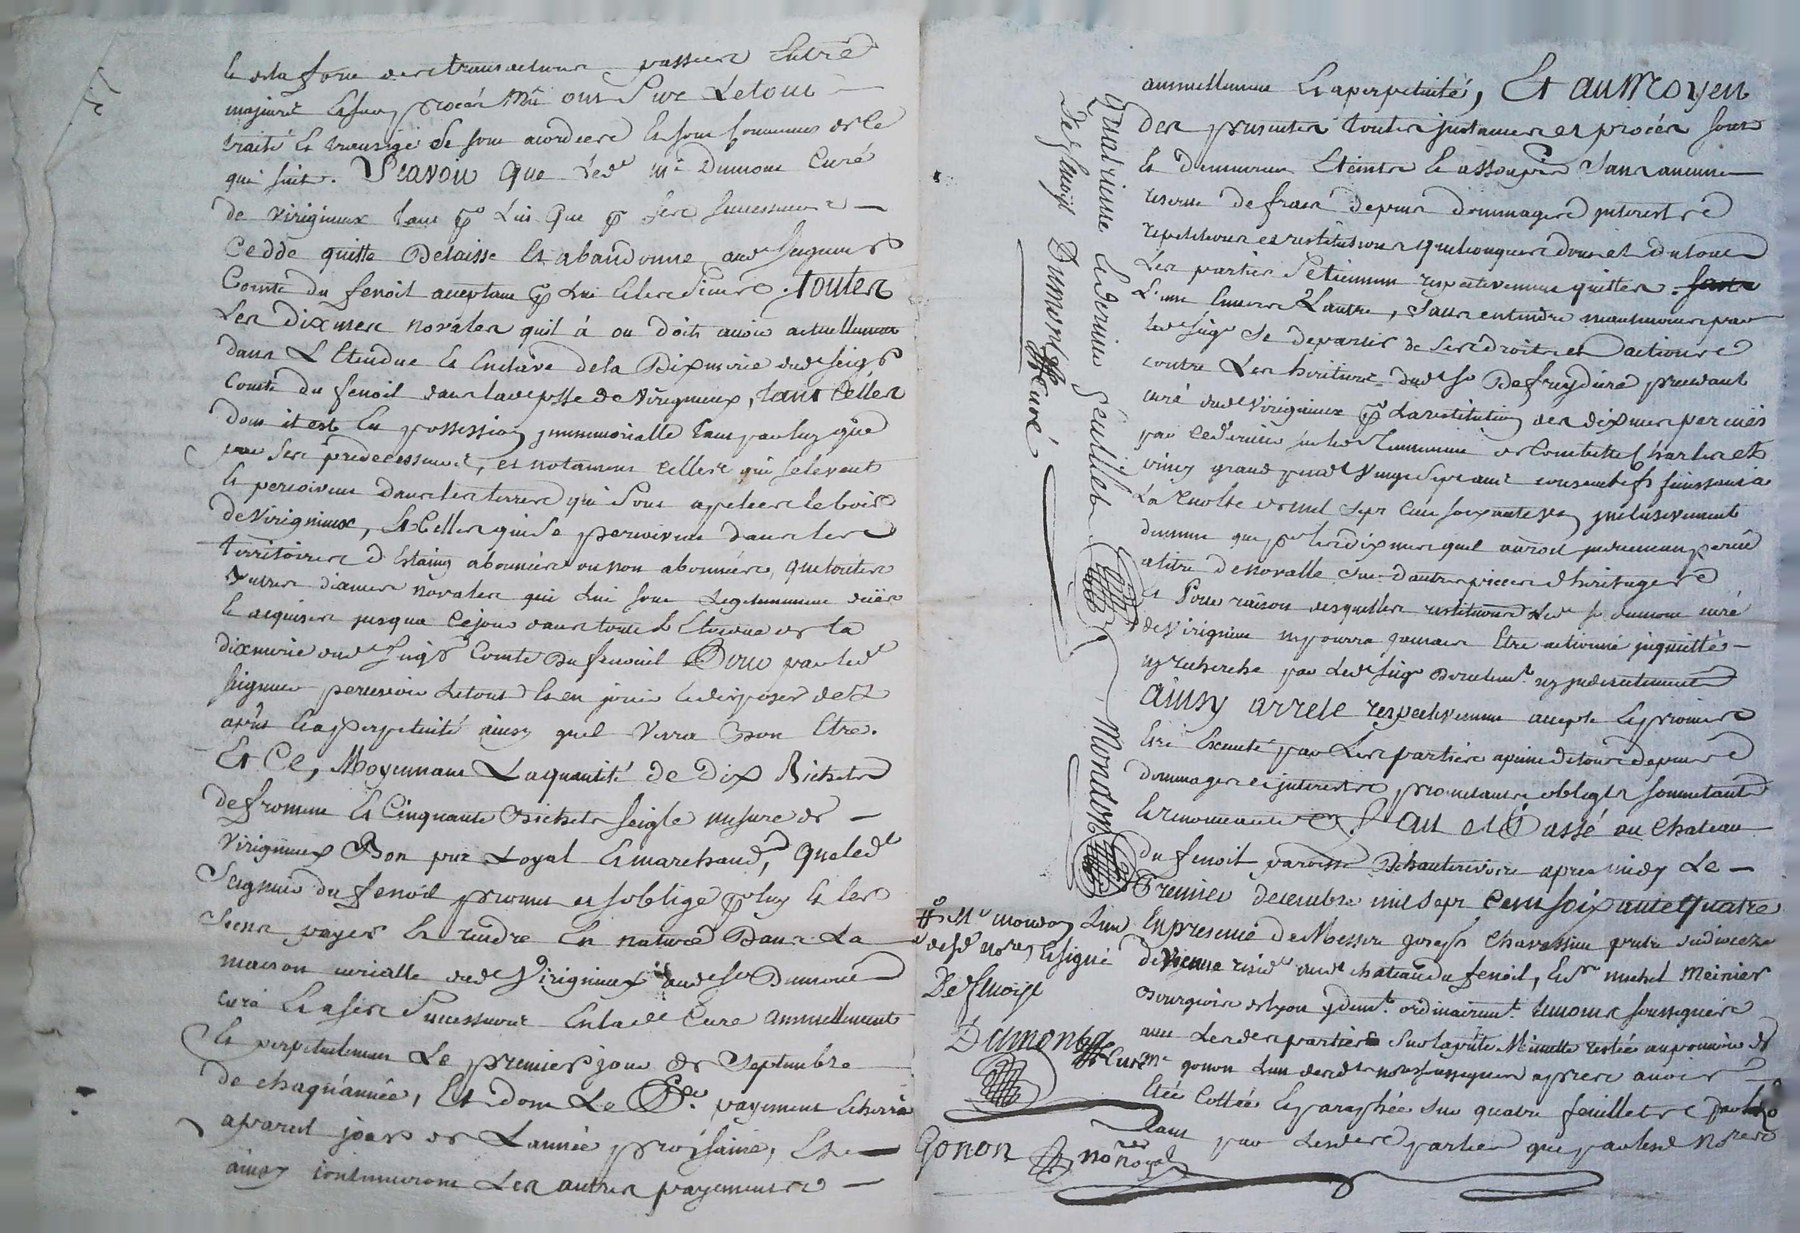 et de la forme des transactions passées Entre
majeurs Et leur procès Mû ont Sur Letout
traité Et transigé Se sont acordées Et sont convenues de Ce
qui suit. Scavoir Que Led. Mr Dumont Curé
de Virignieux tant pr Lui Que pr Ses Successeurs
Cedde quitte Delaisse Et abandonne aud. Seigneur
Comte du fenoil acceptant pr Lui Et les Siens. toutes
Les dixmes novales quil à ou doit avoir actuellement
dans L'Etendue Et Enclave de la Dixmerie dud. Seigr
Comte du fenoil dans lad. psse de Virignieux, tant Celles
dont il est En possession immemorialle tant par luy que
par Ses prédecesseurs, et notament celles qui selevent
Et perçoivent dans les terres qui Sont apelées le bois
de Virignieux, Et Celles qui Se perçoivent dans les
territoires d'Estaing abonnées ou non abonnées, que toutes
autres dixmes novales qui Lui sont Legitimement dües
Et acquises jusqua Cejour dans toute L'Etendue de la
dixmerie dud. Seigr Comte du fenoil Pour par led.
seigneur percevoir Letout Et en jouir Et disposer dez
apnt Et a perpetuité ainsy quil Verra Bon Etre.
Et Ce, Moyennant La quantité de Dix Bichets
de froment Et Cinquante Bichets seigle mesure de
Virignieux Bon pur Loyal Et marchand, Que led.
Seigneur du fenoil promet et s'oblige pr luy Et les
Siens payer Et rendre En nature Dans La
maison curialle dud. Virignieux aud. Sr Dumont
curé Et a ses Successeurs En lad. Cure annuellement
Et perpetuellement Le premier jour de Septembre
de chaqu'année, Et dont Le Per. payement Echerra
apareil jour de L'année prochaine, Et
ainsy continueront Les autres payements
annuellement Et a perpetuité, Et au Moyen
des presentes toutes instances et procès sont
Et demeurent Eteints Et assoupis Sans aucune
reserve de frais depens dommages interests
repetitions et restitutions quelconques dont et du tout
Les parties Se tiennent respectivement quittes.
L'une Envers L'autre, Sans entendre neanmoins par
led. Seigr Se departir de Ses droits et actions
contre Les heritiers dud. Sr Defreydiere precedant
curé dud. Virignieux pr La restitution des dixmes percües
par ce dernier sur les de Combette Charles et
vincy grand pendt Vingt Sept ans consecutifs finissant a
La recolte de mil Sept Cent soixante inclusivement
demême que pr les dixmes quil auroit perçu
a titre de Novalle sur d'autres pieces d'heritages
Et Pour raison desquelles restitutions Led. Sr dumont curé
de Virignieux ny pourra jamais Etre actionné inquietté
ny recherché par Led. Seigr Directemt ny indirectement
ainsy arreté respectivement accepté Et promis
Etre Executé par Les parties apeine de tous depens
dommages et interests, promettant obligeant soumettant
Et renonceant &c. Fait et Passé au Chateau
du fenoil paroisse De hauterivoire apres midy Le
Premier decembre mil Sept Cent soixante Quatre
En presence de Messire joseph Chavassieu pretre du dioceze
de Vienne resid. aud. chateau du fenoil, Et Sr michel Meinier
Bourgeois de Lyon y demt. ordinairemt. temoins soussignés
avec Lesdes parties Sur la pnte Minutte restée au pouvoir de
Mr gonon L'un desds notres soussignés apres avoir
Etée Cottée Et paraphée sur quatre feuillets
tant par Lesdes parties que par lesd. Notres
# de Mr mondon L'un
desd. nores Et signé
De fenoÿl
Dumont
Curé
Gonon
nore royal
Quatrieme Et dernier feuillet
De fenoÿl Dumont Curé
Mondon